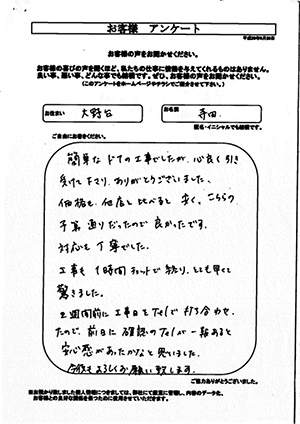 お客様 アンケート
平成28年9月20日
お客様の声をお聞かせください。
お客様の喜びの声を聞くほど、私たちの仕事に情熱を与えてくれるものはありません。
良い事、悪い事、どんな事でも結構です。ぜひ、お客様の声をお聞かせください。
(このアンケートをホームページやチラシでご紹介させて下さい。)
お住まい 大野台
お名前 寺田
匿名・イニシャルでも結構です。
ご自由にお書きください。
簡単なドアの工事でしたが、心良く引き
受けて下さり、ありがとうございました。
価格も、他店と比べると安く、こちらの
予算通りだったので良かったです。
対応も丁寧でした。
工事も1時間チョットで終り、とても早くて
驚きました。
2週間前に工事日をTelで打ち合わせ
たので、前日に確認のTelが一本あると
安心感があったかなと思いました。
今後もよろしくお願い致します。
ご協力ありがとうございました。
※お預かり致しました個人情報につきましては、弊社にて厳重に管理し、内容のデータ化、
お客様との良好な関係を築くために使用させていただきます。